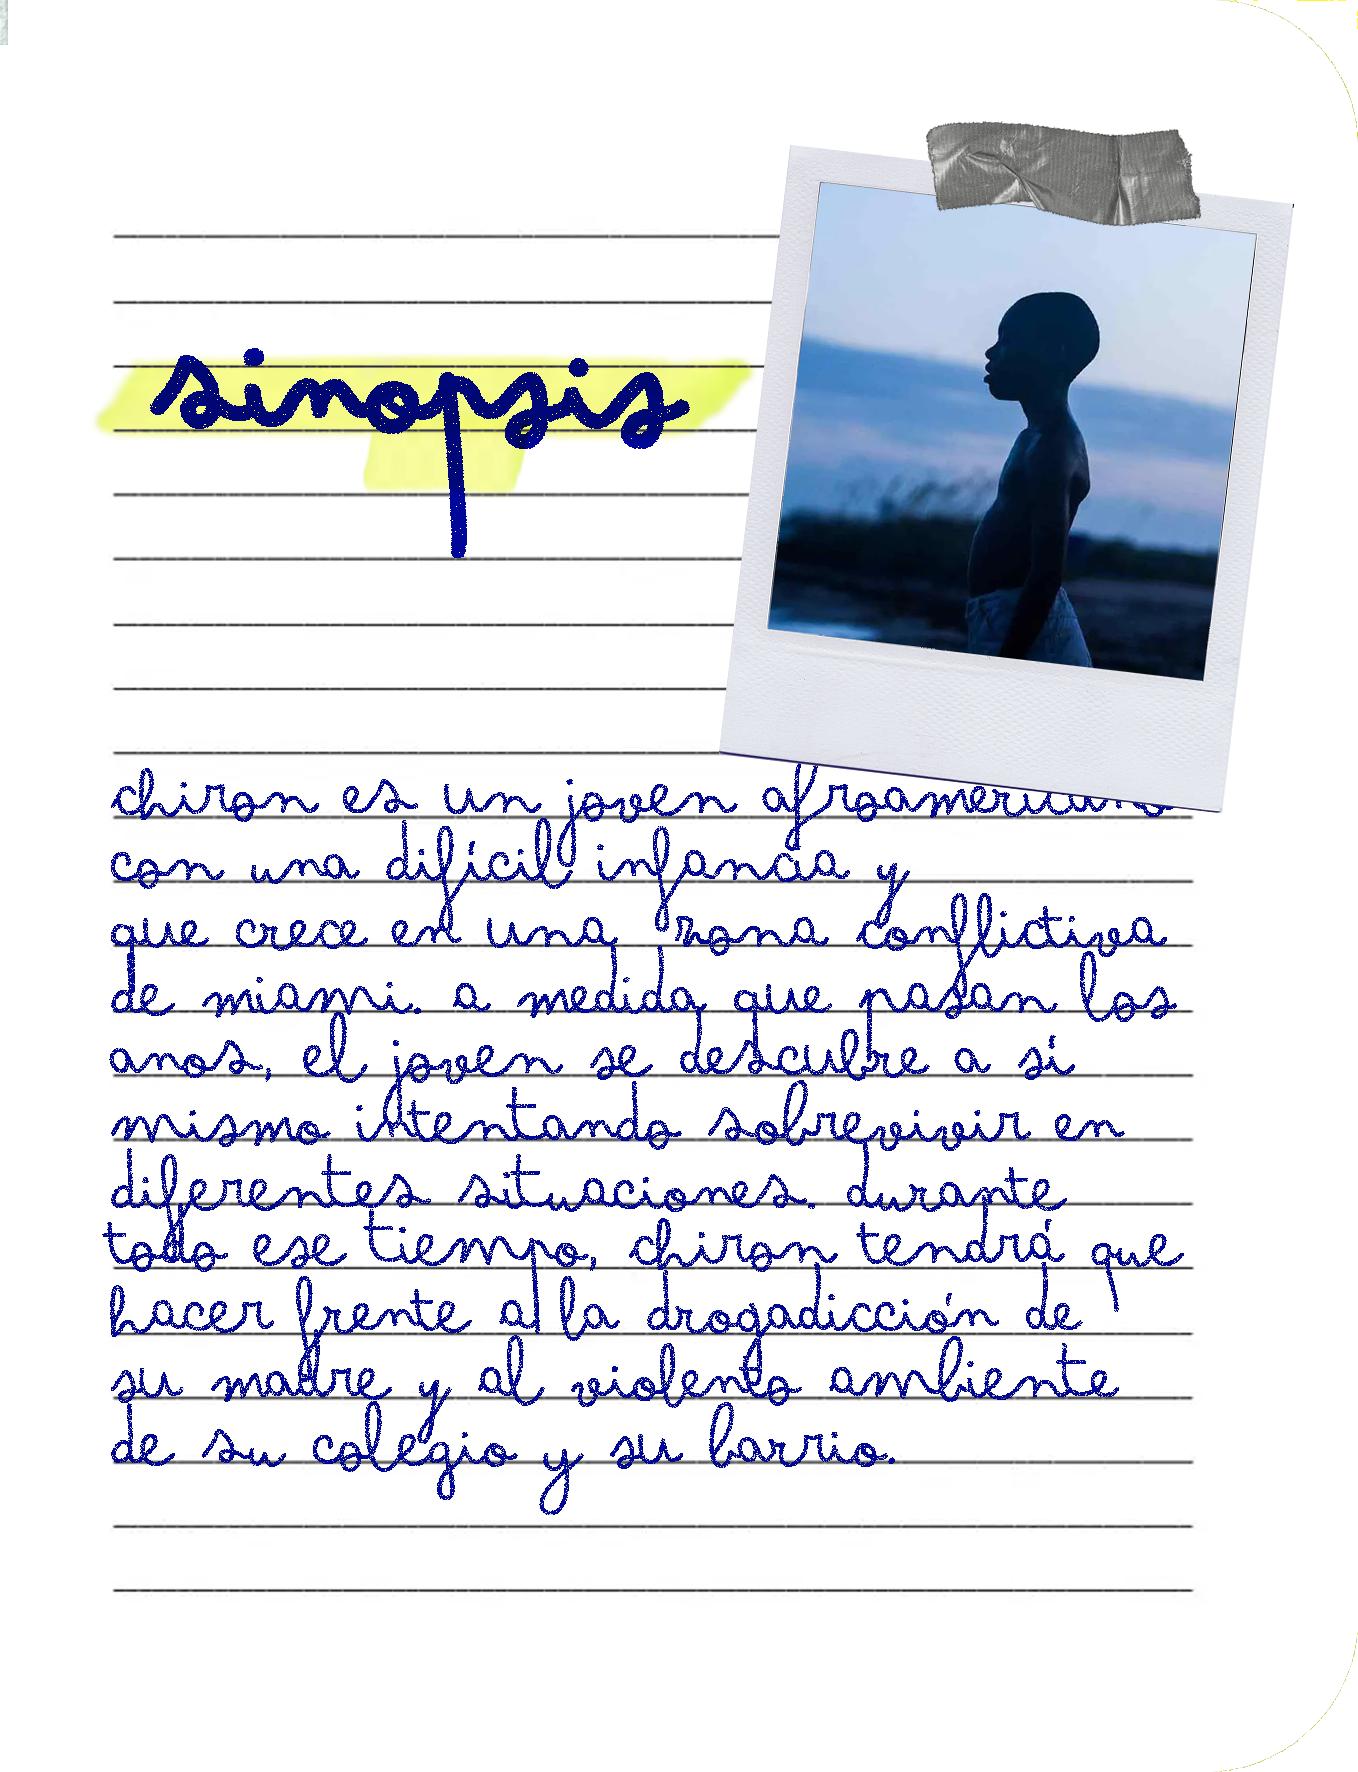 sinopsis
chiron es un joven afroamericano
con una difícil infancia y
que crece en una zona conflictiva
de miami. a medida que pasan los
anos, el joven se descubre a sí
mismo intentando sobrevivir en
diferentes situaciones. durante
todo ese tiempo, chiron tendrá que
hacer frente a la drogadicción de
su madre y al violento ambiente
de su colegio y su barrio.